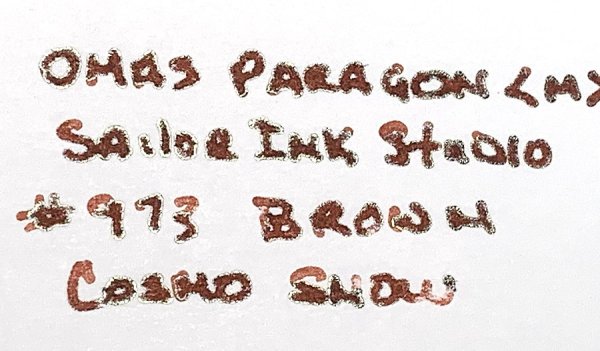 OMAS PARAGON <M>
SAiloR INK STUDIO
#973 BROWN
COSMO SNOW